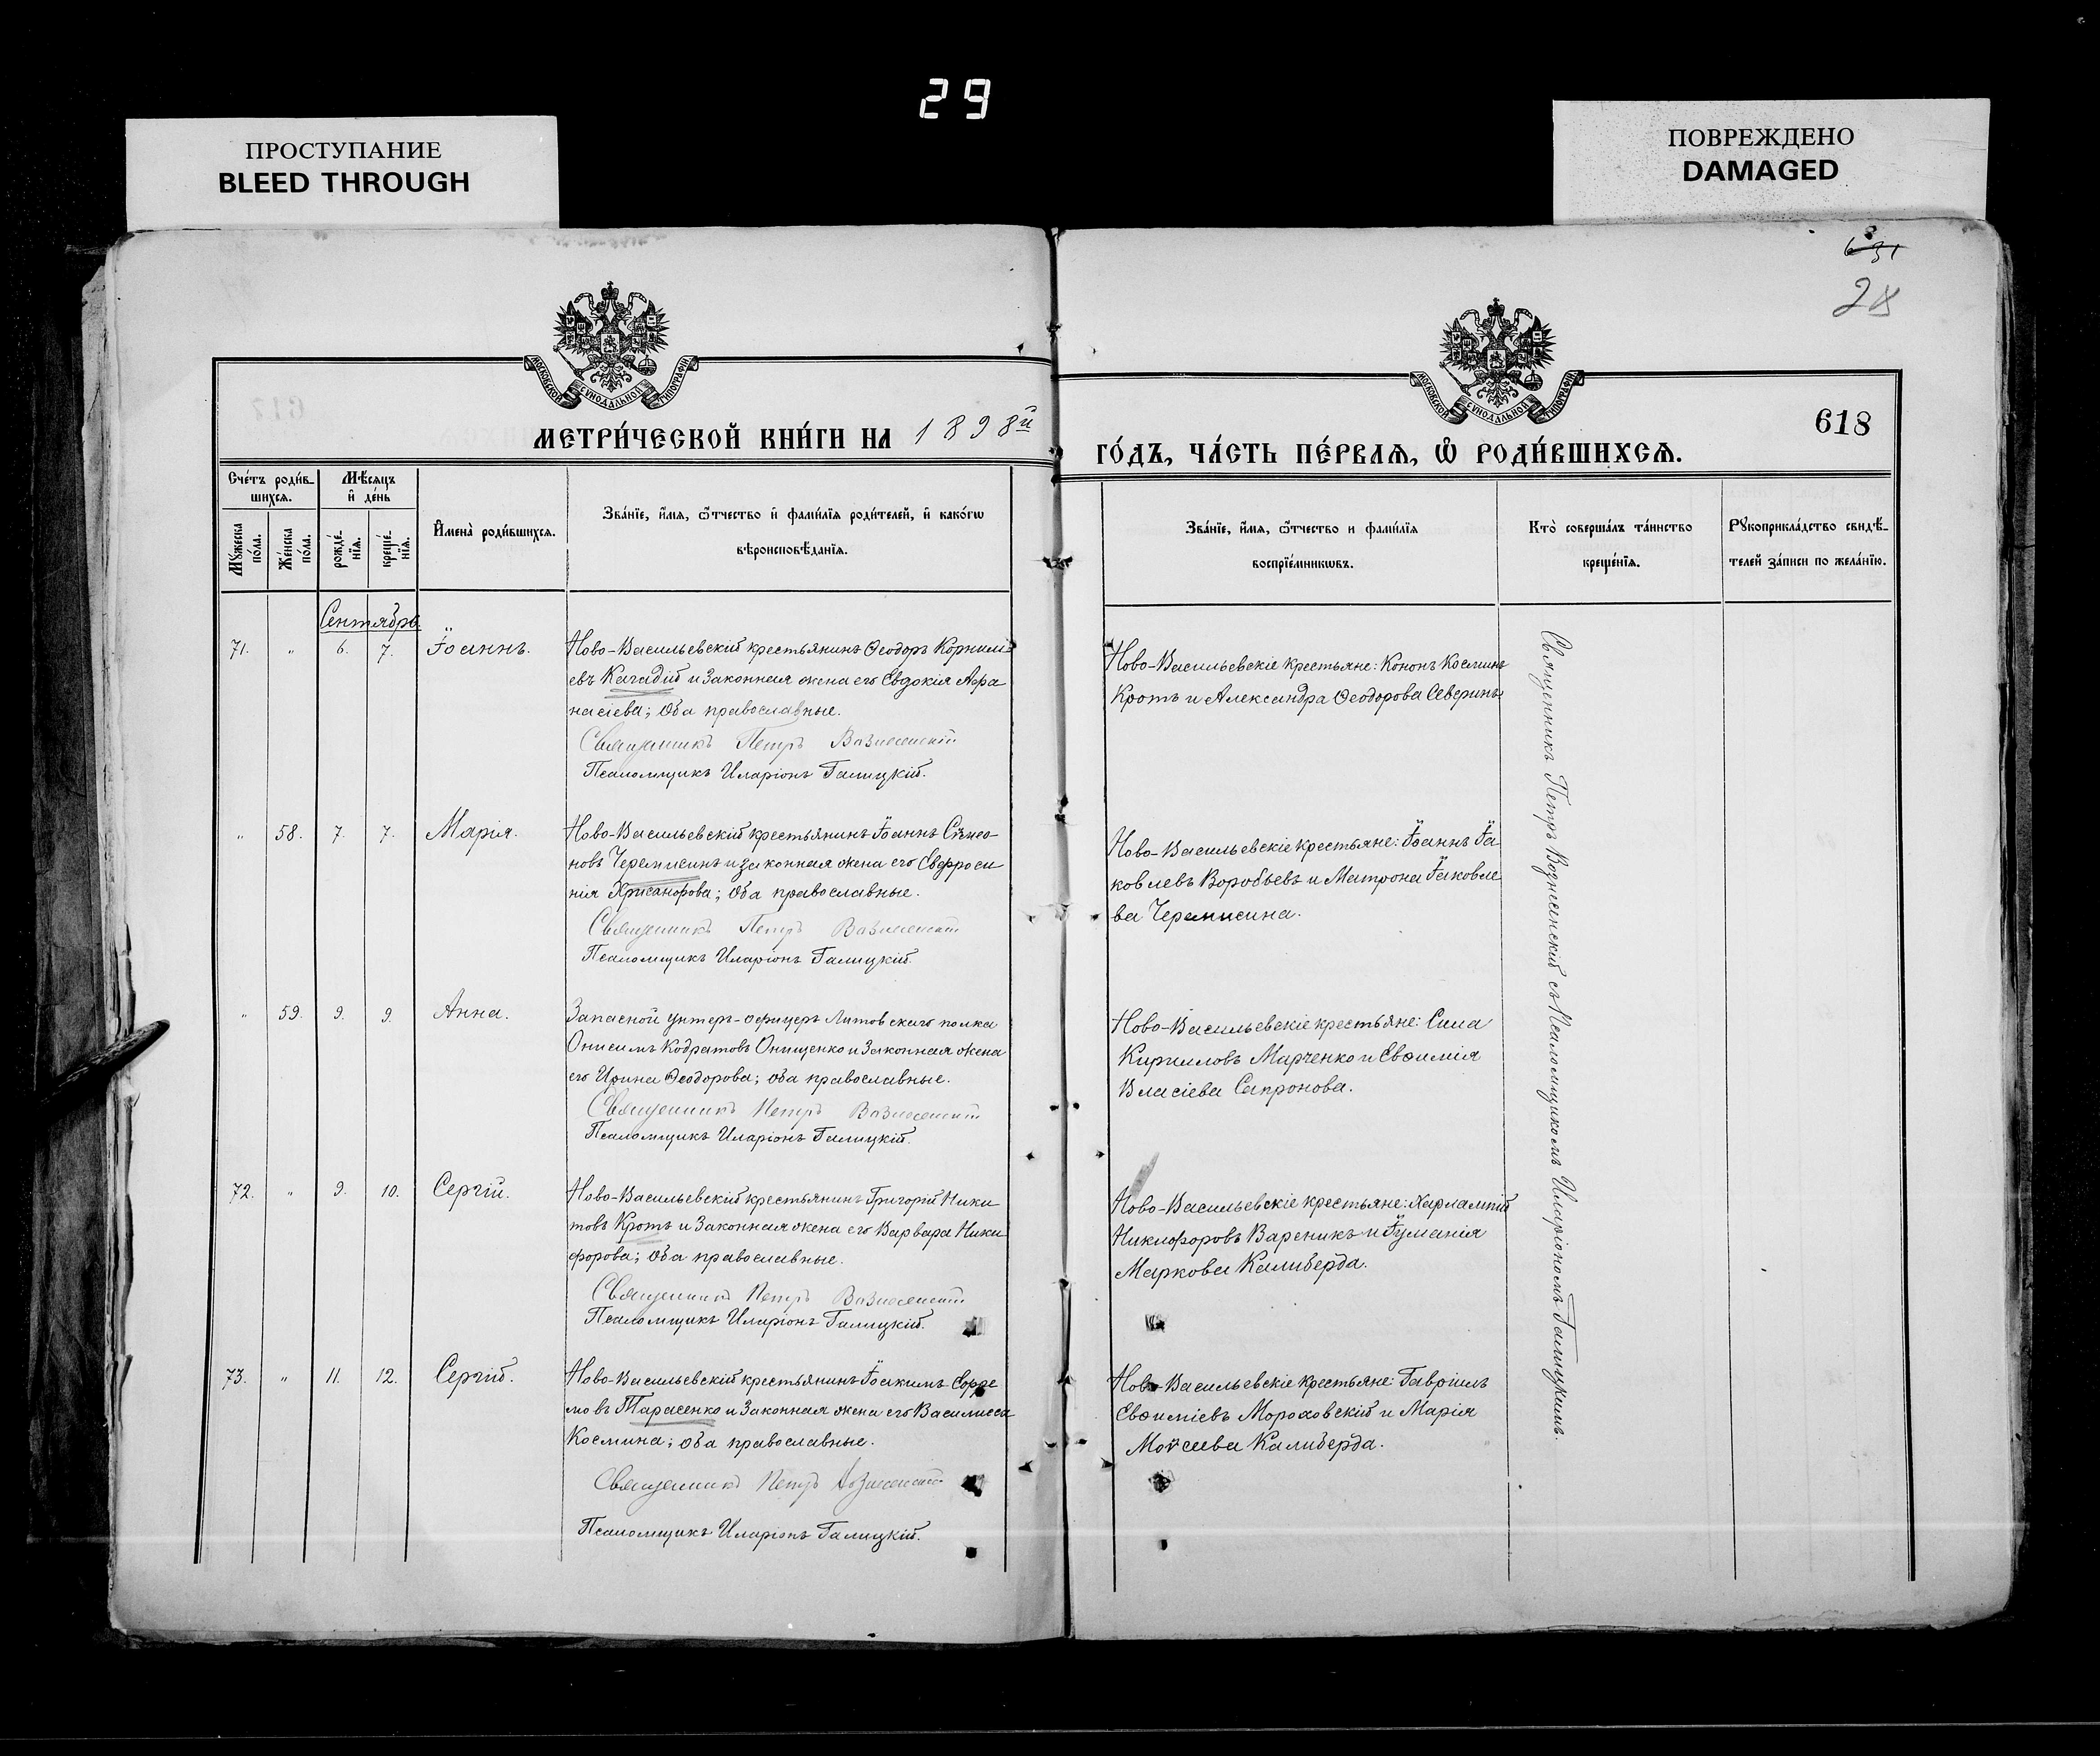 29
ПРОСТУПАНИЕ
BLEED THROUGH
ПОВРЕЖДЕНО
DAMAGED
631
МОСКОВСКОЙ СѴНОДАЛЬНОЙ ТИПОГРАФІИ
МОСКОВСКОЙ СѴНОДАЛЬНОЙ ТИПОГРАФІИ
618
МЕТРИ́ЧЕСКОЙ КНИ́ГИ НА 1898й
ГО́ДЪ, ЧА́СТЬ ПЕ́РВАѦ, Ѡ҆ РОДИ́ВШИХСѦ.
Сче́тъ роди́в-
шихсѧ.
Мѣ́сѧцъ
и҆ де́нь
Мꙋ́жеска по́ла.
Же́нска по́ла.
рожде́-нїѧ.
креще́-нїѧ.
И҆мена̀ роди́вшихсѧ.
Зва́нїе, и҆́мѧ, ѻ҆́тчество и҆ фами́лїѧ роди́телей, и҆ како́гѡ
вѣроисповѣ́данїѧ.
Зва́нїе, и҆́мѧ, ѻ҆́тчество и фами́лїѧ
воспрїе́мникѡвъ.
Кто̀ соверша́лъ та́инство
креще́нїѧ.
Рꙋкоприкла́дство свидѣ́-
телей за́писи по жела́нїю.
Сентябрь.
71. " 6. 7. Іоаннъ. Ново-Васильевскій крестьянинъ Ѳеодоръ Корнили-
евъ Качадій и законная жена его Евдокія Аѳа
насіева; оба православные.
Священникъ Петръ Вознесенскій
Псаломщикъ Иларіонъ Галицкій.
Ново-Васильевскіе крестьяне: Кононъ Косминъ
Кротъ и Александра Ѳеодорова Северинъ
" 58. 7. 7. Марія. Ново-Васильевскій крестьянинъ Іоаннъ Сѵмео-
новъ Черемисинъ и законная жена его Евфроси
нія Хрисанфова; оба православные.
Священникъ Петръ Вознесенскій
Псаломщикъ Иларіонъ Галицкій.
Ново-Васильевскіе крестьяне: Іоаннъ Іа
ковлевъ Воробьевъ и Матрона Іаковле
ва Черемисина.
" 59. 9. 9. Анна. Запасной унтеръ-офицеръ Литовскаго полка
Онисимъ Кодратовъ Онищенко и законная жена
его Ирина Ѳеодорова; оба православные.
Священникъ Петръ Вознесенскій
Псаломщикъ Иларіонъ Галицкій.
Ново-Васильевскіе крестьяне: Сила
Кирилловъ Марченко и Евѳимія
Власіева Сапронова.
72. " 9. 10. Сергій. Ново-Васильевскій крестьянинъ Григорій Ники
товъ Кротъ и законная жена его Варвара Ники
форова; оба православные.
Священникъ Петръ Вознесенскій
Псаломщикъ Иларіонъ Галицкій.
Ново-Васильевскіе крестьяне: Харлампій
Никифоровъ Вареникъ и Іуліанія
Маркова Калиберда.
73. " 11. 12. Сергій. Ново-Васильевскій крестьянинъ Іоакимъ Ефре
мовъ Тарасенко и законная жена его Василисса
Космина; оба православные.
Священникъ Петръ Вознесенскій
Псаломщикъ Иларіонъ Галицкій.
Ново-Васильевскіе крестьяне: Гавріилъ
Евѳиміевъ Мороховскій и Марія
Моѵсеева Калиберда.
Священникъ Петръ Вознесенскій съ Псаломщикомъ Иларіономъ Галицкимъ.